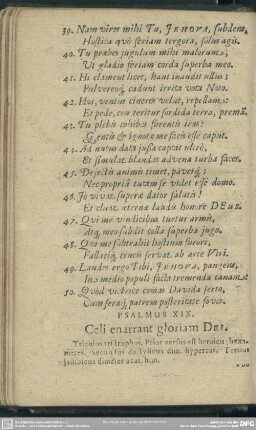 39. Nam vires mihi Tu, JEHOVA, subdens,
Hostica quô feriam tergora, solus agis.
40. Tu præbes jugulum mihi malorum;
Ut gladio feriam corda superba meo.
41. Hi clament licet, haut inaudit ullus;
Pulvereoq́; cadunt irrita vota Noto.
42. Hos, ventus cineres velut, repellam:
Et pede, ceu teritur sordida terra, premā.
43. Tu plebis cohibes furentis iras:
Gentis & ignotæ me facis esse caput.
44. Ad nutum data jussa captat ultrò,
Et simulat blandas advena turba faces.
45. Dejectis animis timet, pavetq́;
Ne propriâ tutam se videt esse domo.
46. Jo vivat superæ dator salutis!
Et claræ æternæ laudis honore DEus.
47. Qui me vindicibus tuetur armis,
Atq; meo subdit colla superba jugo.
48. Qui me subtrahit hostium furori,
Factaq́; trucis servat ab arte Viri.
49. Laudes ergo Tibi, JEHOVA, pangens,
In medio populi facta tremenda canam.
50. Quod victrice comas Davida serto,
Cum seraq́; patrem posteritate foves.
PSALMUS XIX.
Cœli enarrant gloriam DEI.
Tricolos tristrophus. Prior versus est heroicus hexa-
meter, secundus dactylicus dim. hypercat. Tertius
Iambicus dimeter acat.